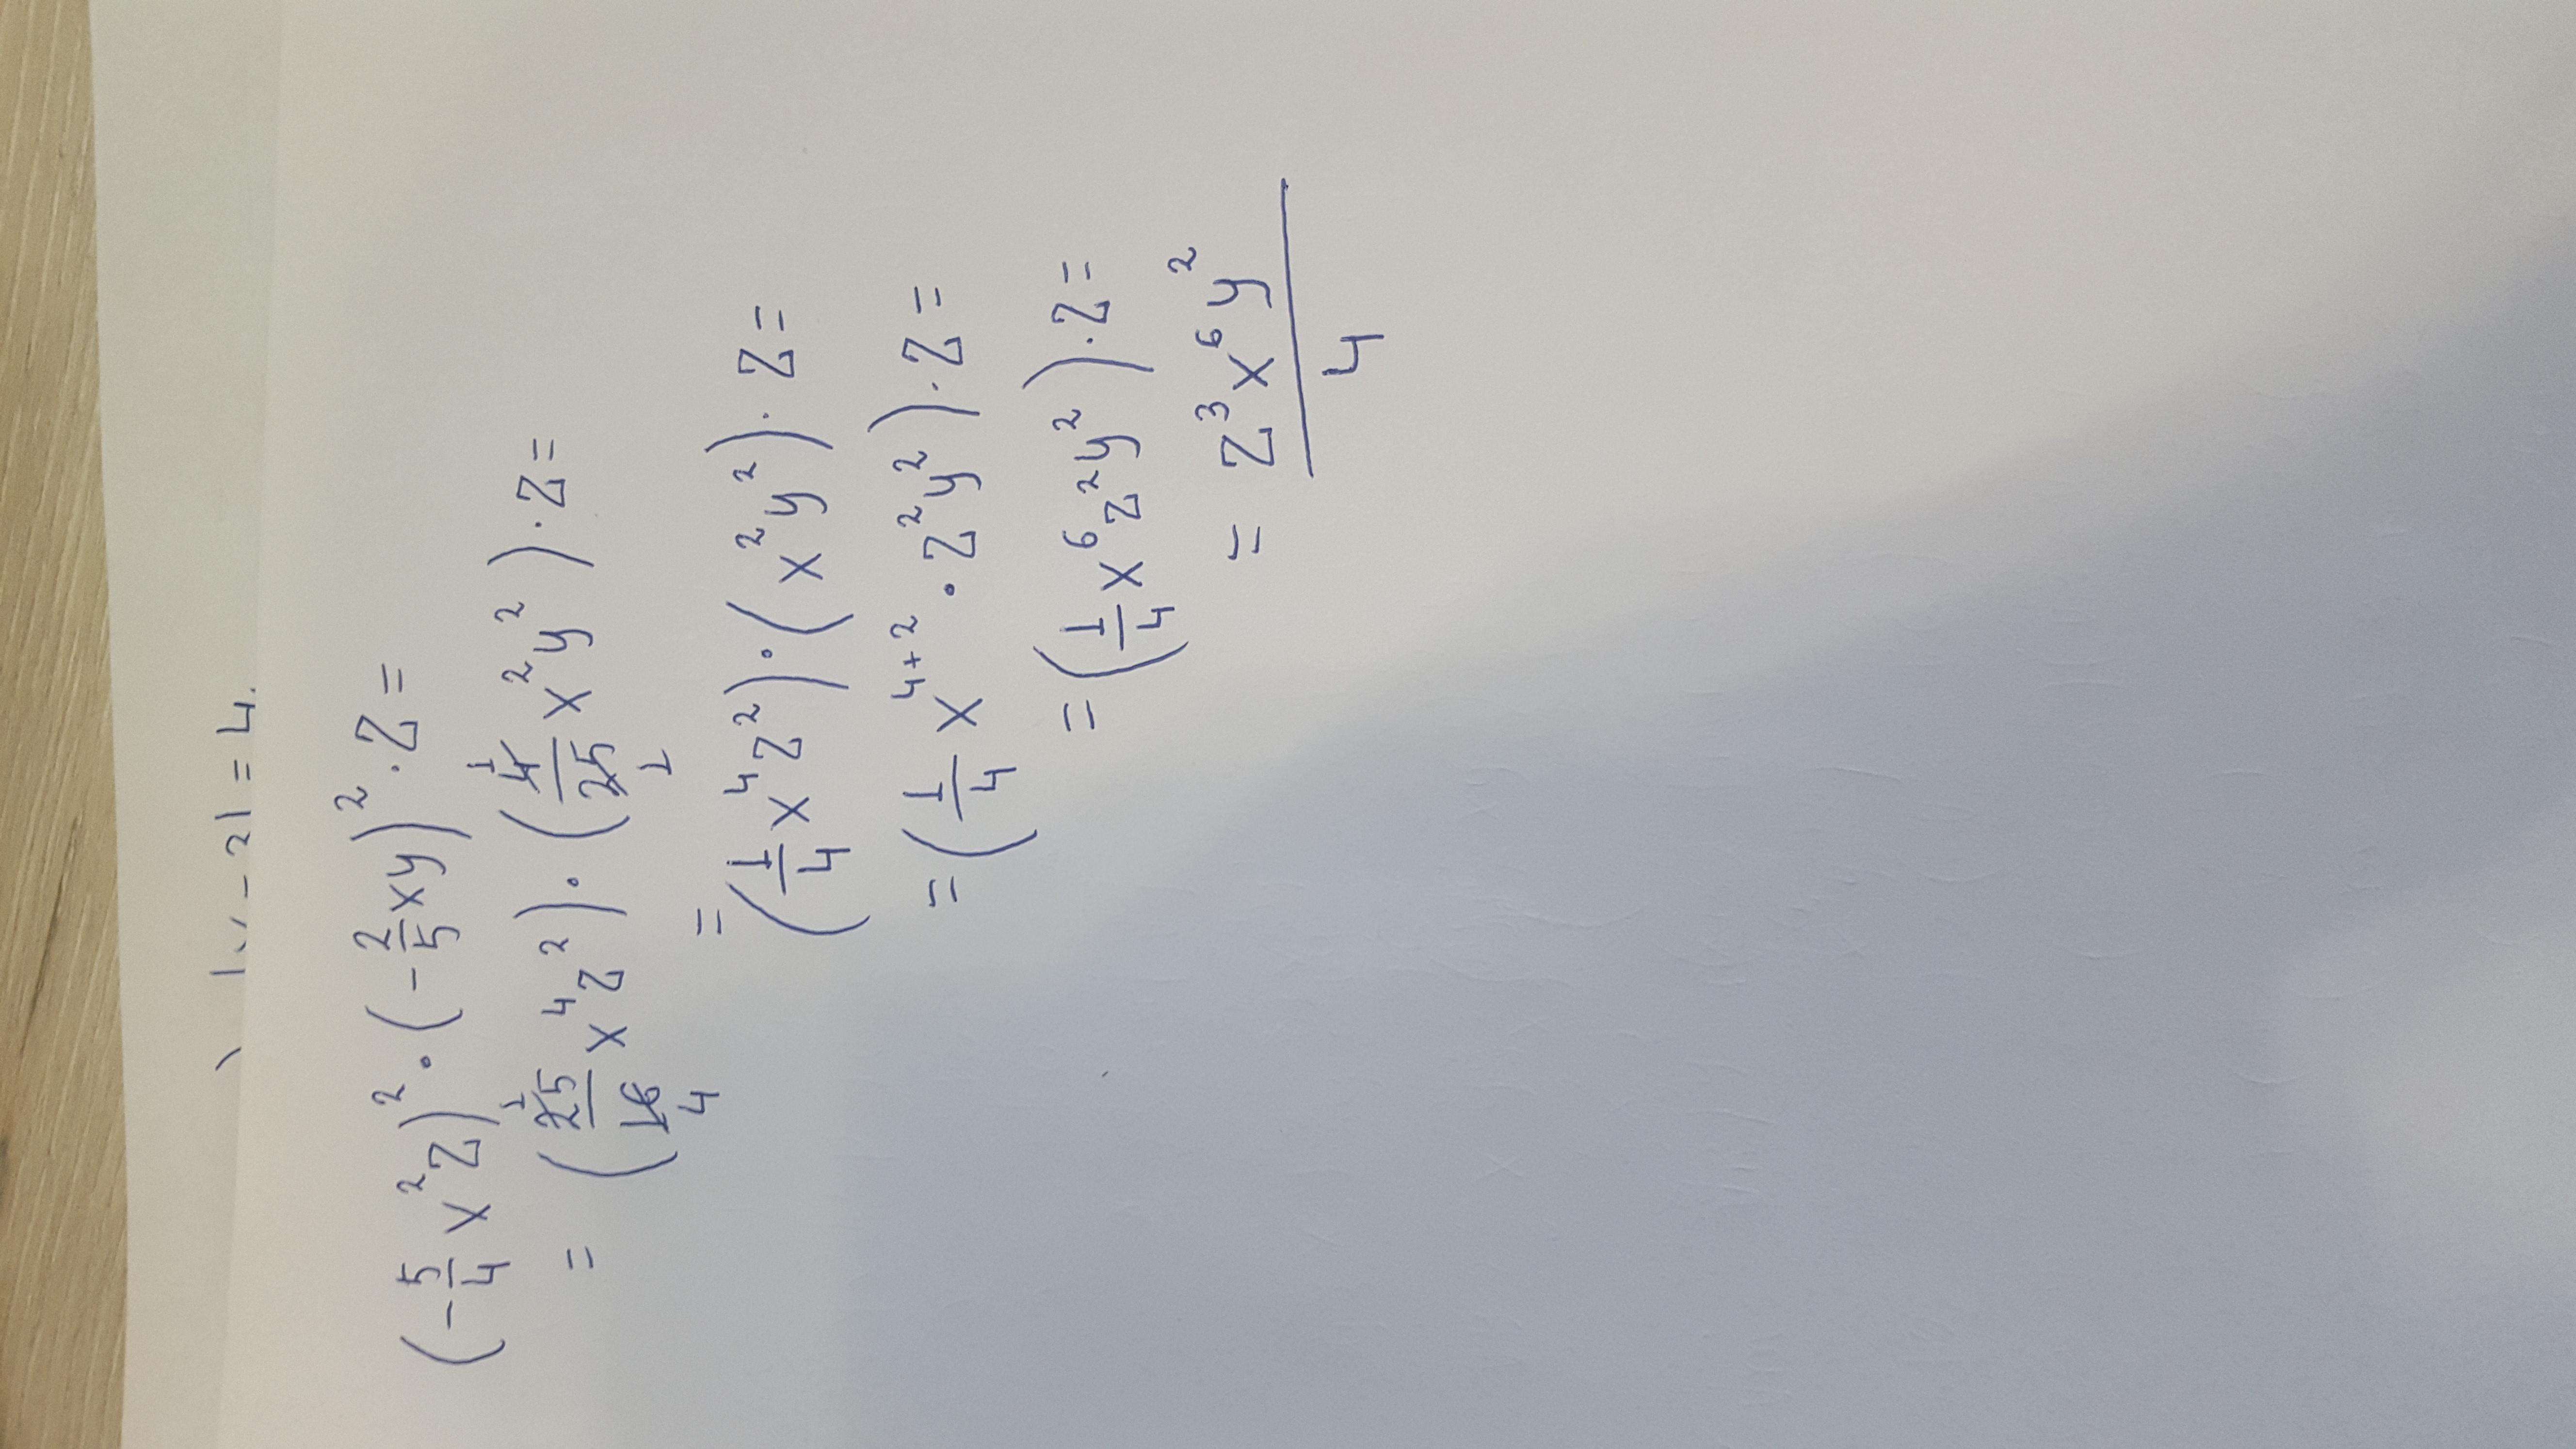 |x - 2| = 4.
(-5/4 x²z)² · (-2/5 xy)² · z =
= (25/16 x⁴z²) · (4/25 x²y²) · z =
1 4 1 1
= (1/4 x⁴z²) · (x²y²) · z =
= (1/4 x⁴⁺² · z²y²) · z =
= (1/4 x⁶z²y²) · z =
= z³x⁶y²/4